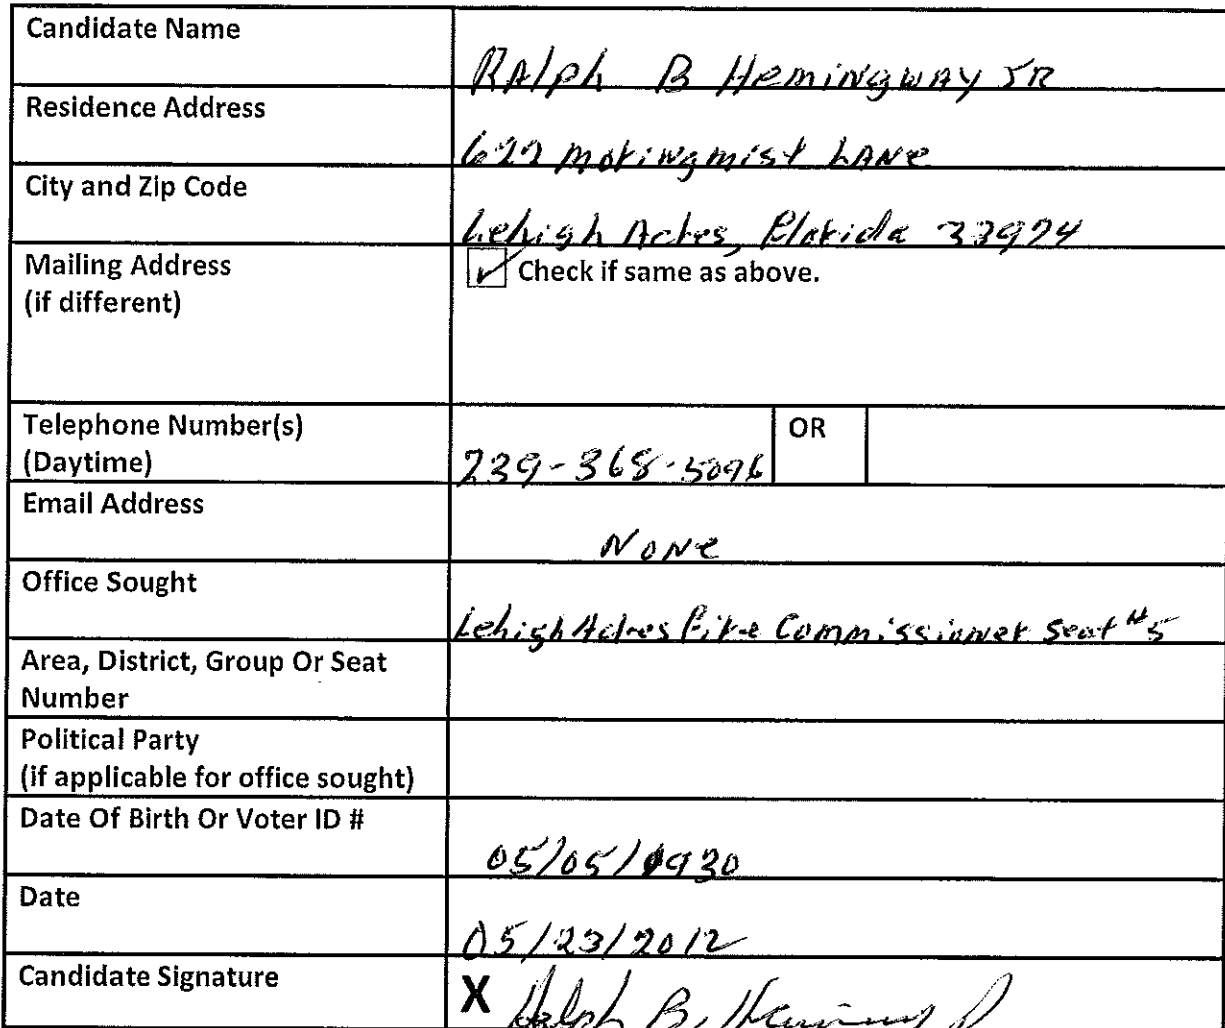 Candidate Name
RAlph B HemiNgwAy JR
Residence Address
622 morNiNgmist LANe
City and Zip Code
Lehigh Acres, Florida 33974
Mailing Address
(if different)
Check if same as above.
Telephone Number(s)
(Daytime)
239-368-5096
OR
Email Address
NoNe
Office Sought
Lehigh Acres Fire Commissioner Seat #5
Area, District, Group Or Seat
Number
Political Party
(if applicable for office sought)
Date Of Birth Or Voter ID #
05/05/1930
Date
05/23/2012
Candidate Signature
X Ralph B.